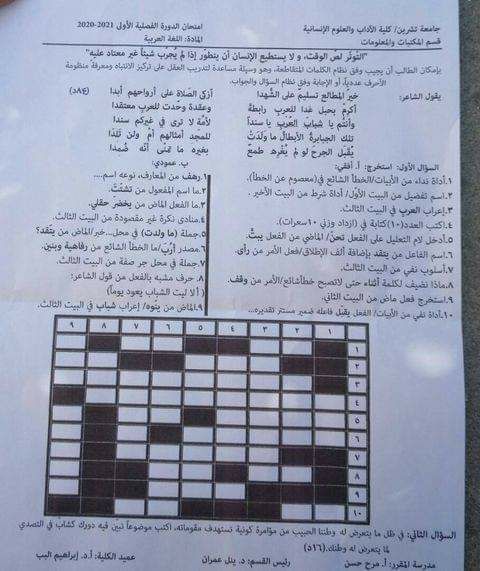 جامعة تشرين/ كلية الآداب والعلوم الإنسانية
امتحان الدورة الفصلية الأولى 2021-2020
قسم المكتبات والمعلومات
المادة: اللغة العربية
"التوتّر لصّ الوقت، و لا يستطيع الإنسان أن يتطوّر إذا لم يُجرب شيئاً غير معتاد عليه"
بإمكان الطالب أن يجيب وفق نظام الكلمات المتقاطعة، وهو وسيلة مساعدة لتدريب العقل على تركيز الانتباه ومعرفة منظومة
الأحرف عدديا، أو الإجابة وفق نظام السؤال والجواب.
يقول الشاعر:
خير المطالع تسليم على الشّهدا
أزكى الصّلاة على أرواحهم أبدا
أكرم بحبل غدا للعرب رابطةً
وعقدة وحدت للعرب معتقدا
وأنتم يا شباب العرب يا سندا
لأمة لا ترى في غيركم سندا
تلك الجبابرة الأبطال ما ولدت
للمجد أمثالهم أمّ ولن تلدا
يُقبّل الجرح لو لم يُغْرِه طمعٌ
بغيره ما تمنّى أنّه ضُمدا
السؤال الأول: استخرج: أ. أفقي:
1.أداة نداء من الأبيات/الخطأ الشائع في(معصوم عن الخطأ).
2.اسم تفضيل من البيت الأول/ أداة شرط من البيت الأخير.
3.إعراب العرب في البيت الثالث.
4.اكتب العدد(10)كتابة في (ازداد وزني 10سعرات).
5.أدخل لام التعليل على الفعل نحنُ/ الماضي من الفعل يبتُّ.
6.اسم الفاعل من ينتقد بإضافة ألف الإطلاق/فعل الأمر من رأى.
7.أسلوب نفي من البيت الثالث.
8.ماذا نضيف لكلمة أثناء حتى لاتصبح خطأشائع/الأمر من وقف.
9.استخرج فعل ماض من البيت الثاني.
10.أداة نفي من الأبيات/ الفعل يقبل فاعله ضمير مستتر تقديره...
ب. عمودي:
1.وهف من المعارف، نوعه اسم....
2.ما اسم المفعول من تشتّت.
3.ما الفعل الماض من يخضرّ حقلي.
4.منادى نكرة غير مقصودة من البيت الثالث.
5.جملة (ما ولدت) في محل...خبر/الماض من يتقد؟
6.مصدر أرّب/ما الخطأ الشائع من رفاهية وبنين.
7.جملة في محل جر صفة من البيت الثالث.
8. حرف مشبه بالفعل من قول الشاعر:
( ألا ليت الشباب يعود يوماً)
9.الماض من ينوه/ إعراب شباب في البيت الثالث.
٩ ٨ ٧ ٦ ٥ ٤ ٣ ٢ ١
١
٢
٣
٤
٥
٦
٧
٨
٩
١٠
السؤال الثاني: في ظل ما يتعرض له وطننا الحبيب من مؤامرة كونية تستهدف مقوماته، اكتب موضوعاً تبين فيه دورك كشاب في التصدي
لما يتعرض له وطنك.
مدرسة المقرر: أ.مرح حسن
رئيس القسم: د. ينل عمران
عميد الكلية: أ.د. إبراهيم البب